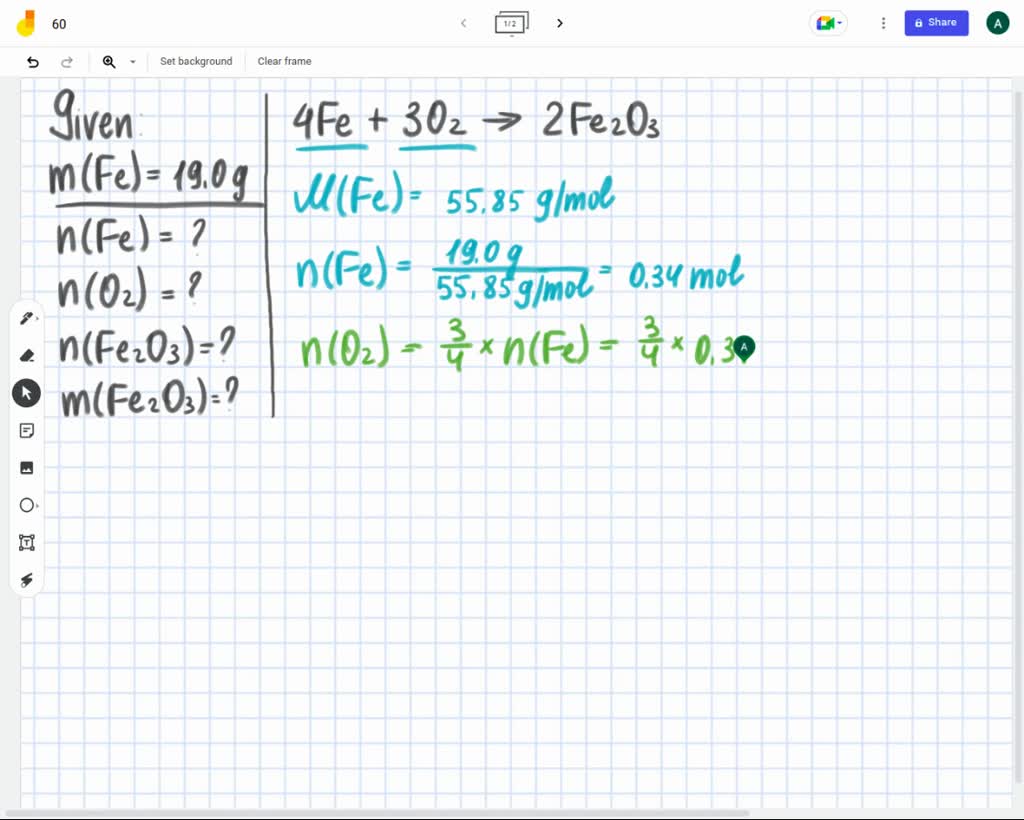 60
1/2
Share
A
Set background
Clear frame
Given:
m(Fe) = 19.0 g
n(Fe) = ?
n(O₂) = ?
n(Fe₂O₃) = ?
m(Fe₂O₃) = ?
4Fe + 3O₂ → 2Fe₂O₃
M(Fe) = 55.85 g/mol
n(Fe) = 19.0 g / 55.85 g/mol = 0.34 mol
n(O₂) = 3/4 × n(Fe) = 3/4 × 0.3
A